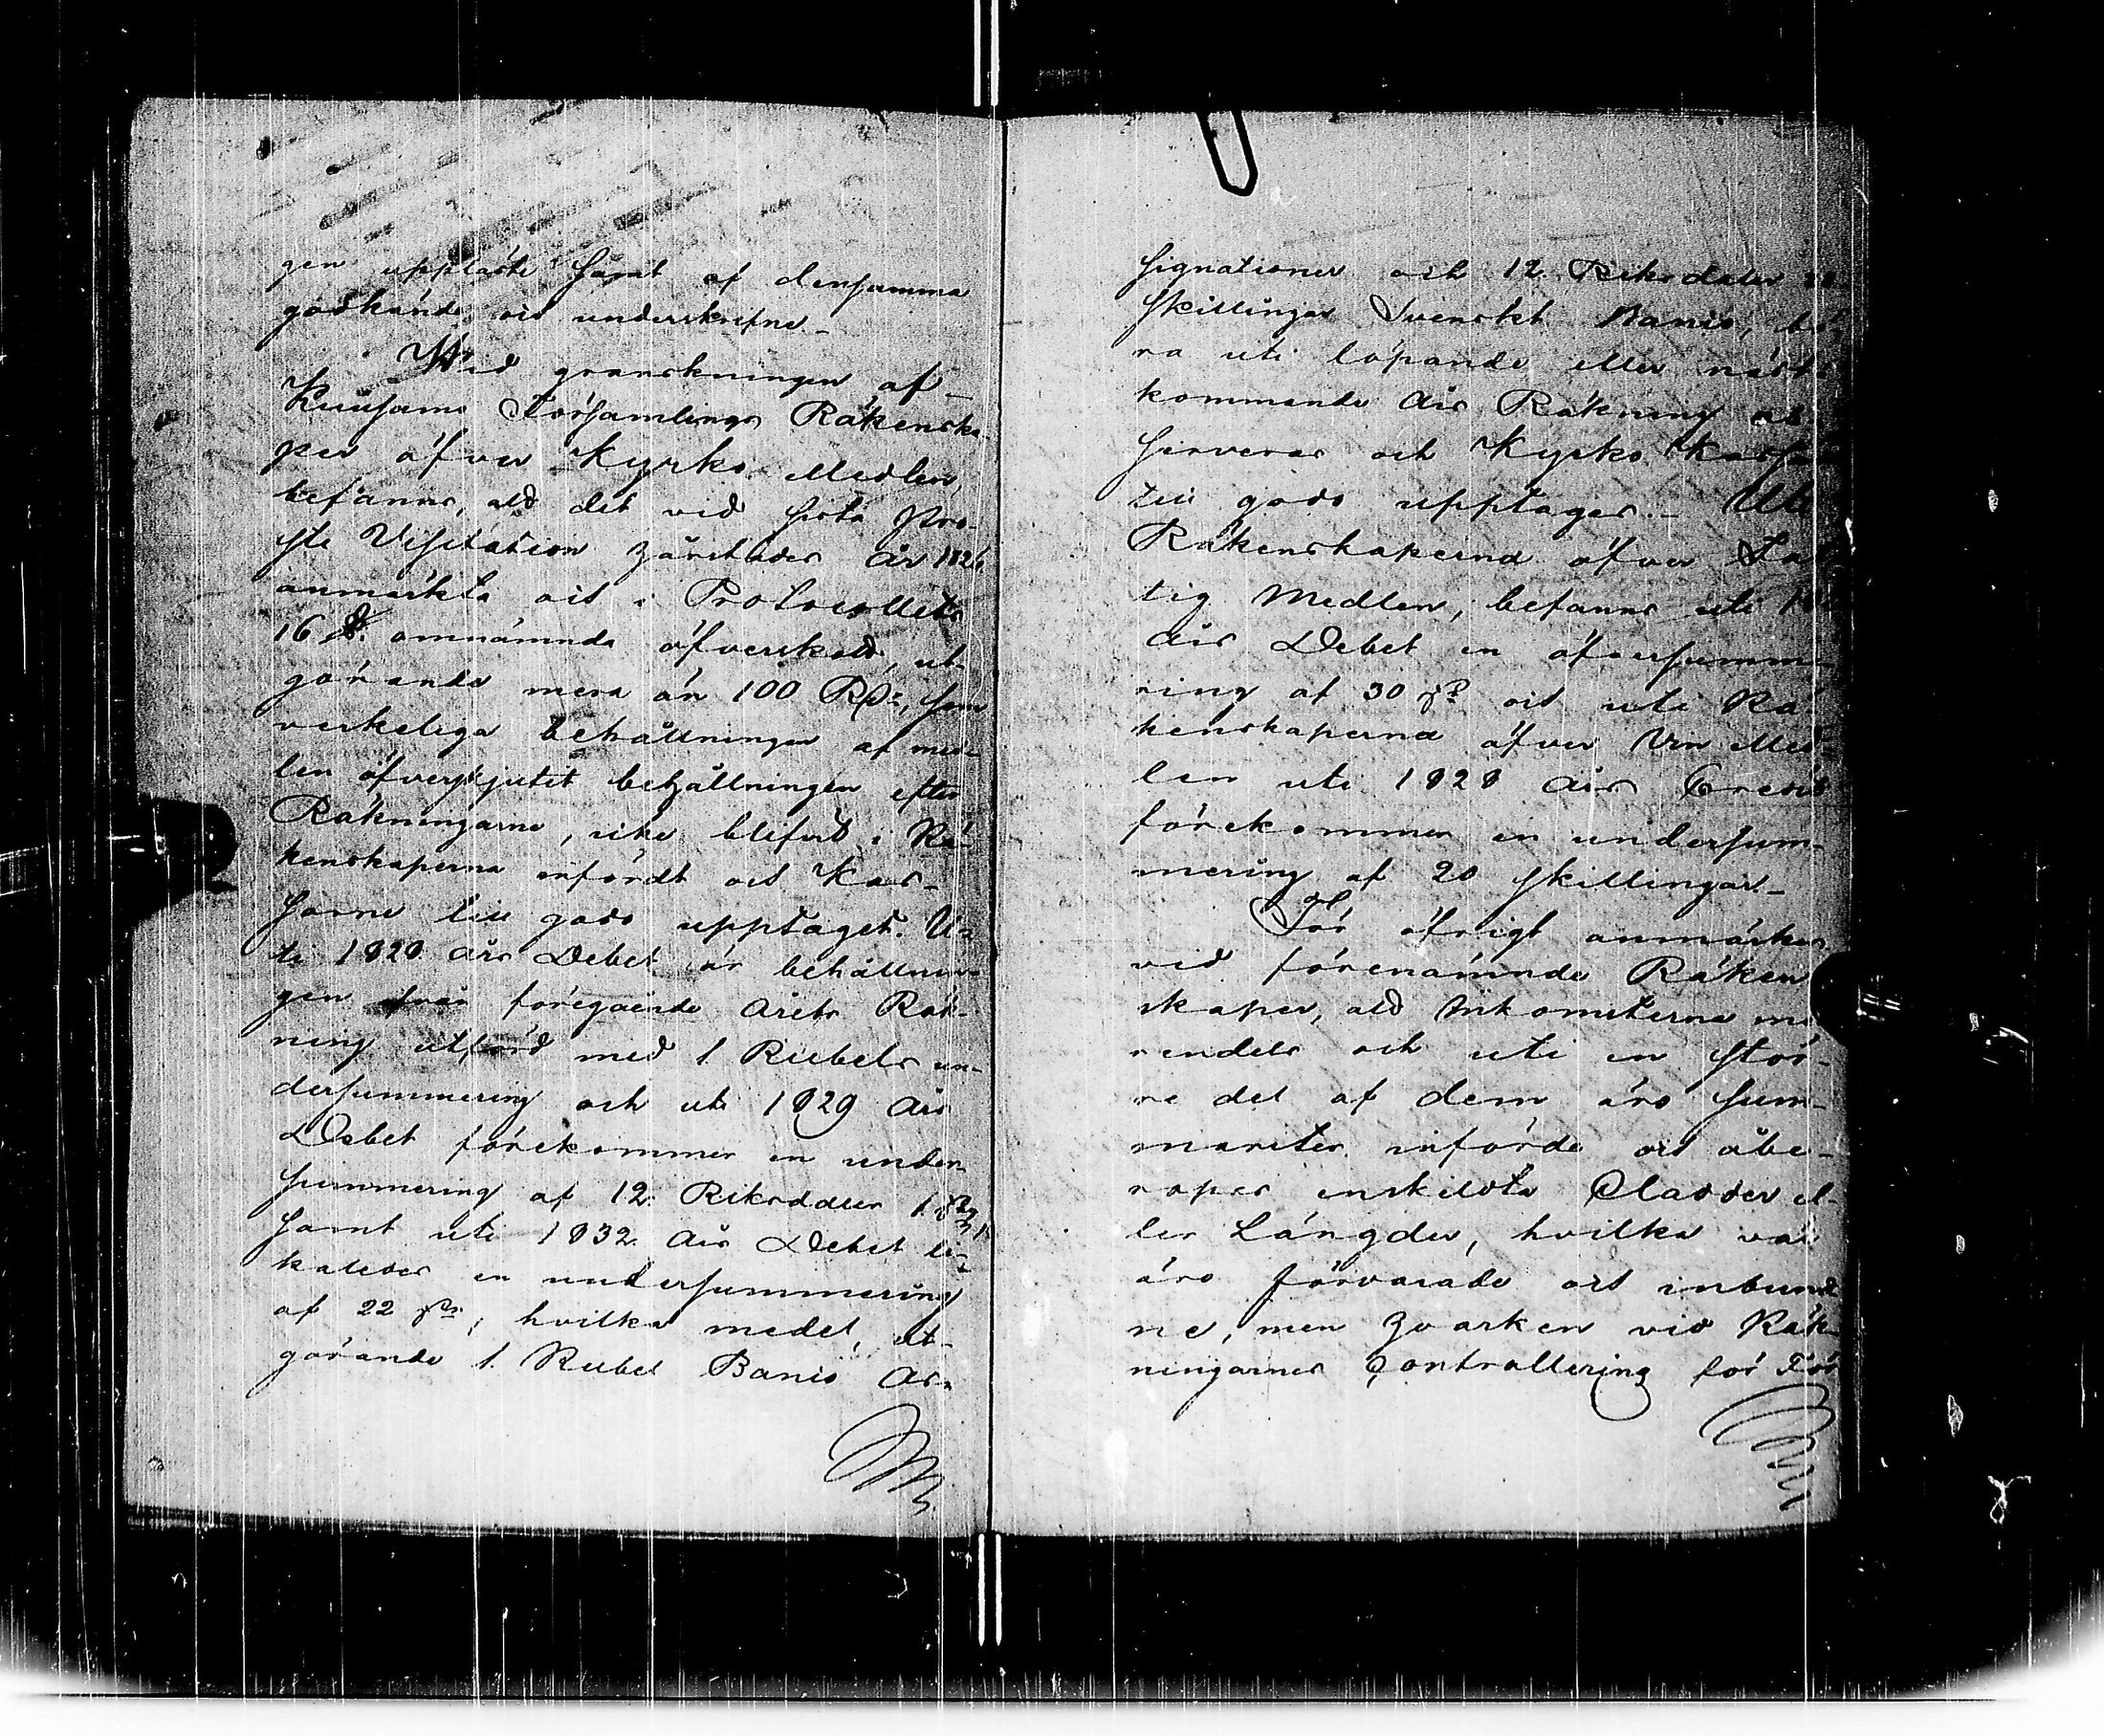 gen uppläste samt af densamma
godkände och underskrefne_
Wid granskningen af_
Kuusamo Församlings Räkenska-
per öfver Kyrko Medlen,
befanns, att det vid sista Pro-
ste Visitation härstädes år 182
anmärkta och i Protocollets
16 §. omnämnda öfverskott, ut-
görande mera än 100 Rd:, som
verkeliga behållningen af med-
len öfverskjutit behållningen efter
Räkningarne, icke blifvit i Rä-
kenskaperna infördt och Kas-
sorne till godo upptaget. U-
ti 1828 års Debet är behållnin-
gen från föregående årets Räk-
ning utförd med 1 Rubels un-
dersummering och uti 1829 års
Debet förekommer en under-
summering af 12 Riksdaler 1
samt uti 1832 års Debet li-
kaledes en undersummering
af 22 , hvilka medel, ut-
görande 1. Rubel Banco As-
signationer och 12 Riksdaler
skillingar Svenskt Banco, bö-
ra uti löpande eller näst-
kommande års Räkning
och Kyrko Kassan
till godo upptages._ Uti
Räkenskaperna öfver Fat-
tig Medlen, befanns uti
års Debet en öfversumme-
ring af 30 och uti Rä-
kenskaperna öfver Vin Med-
len uti 1828 års Credit
förekommer en undersum-
mering af 20 skillingar._
För öfrigt anmärkes
vid förenämnde Räken-
skaper, att Inkomsterne
rendels och uti en stör-
re del af dem äro sum-
mariter införde och åbe-
ropas enskildta Cladder el-
ler Längder, hvilka väl
äro förvarade och inbund-
ne, men hvarken vid Räk-
ningarnes Controllering för För